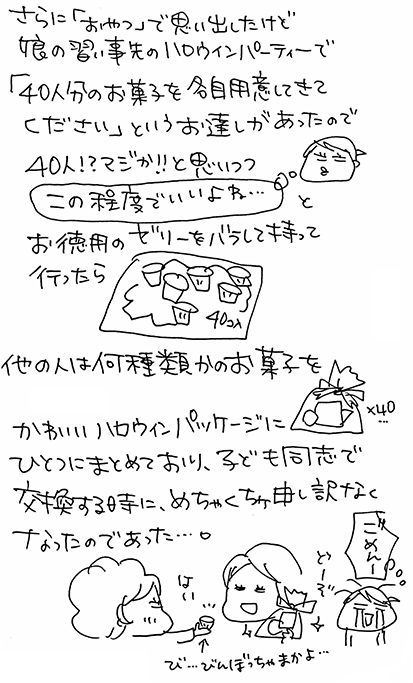 さらに「おやつ」で思い出したけど
娘の習い事先のハロウィンパーティーで
「40人分のお菓子を各自用意してきて
ください」というお達しがあったので
40人!?マジか!!と思いつつ
この程度でいいよね…
と
お徳用のゼリーをバラして持って
行ったら
40コ入
他の人は何種類かのお菓子を
×40
…
かわいいハロウィンパッケージに
ひとつにまとめており、子ども同志で
交換する時に、めちゃくちゃ申し訳なく
なったのであった…。
はい
どーぞ
ごめんー
び…びんぼっちゃまかよ…